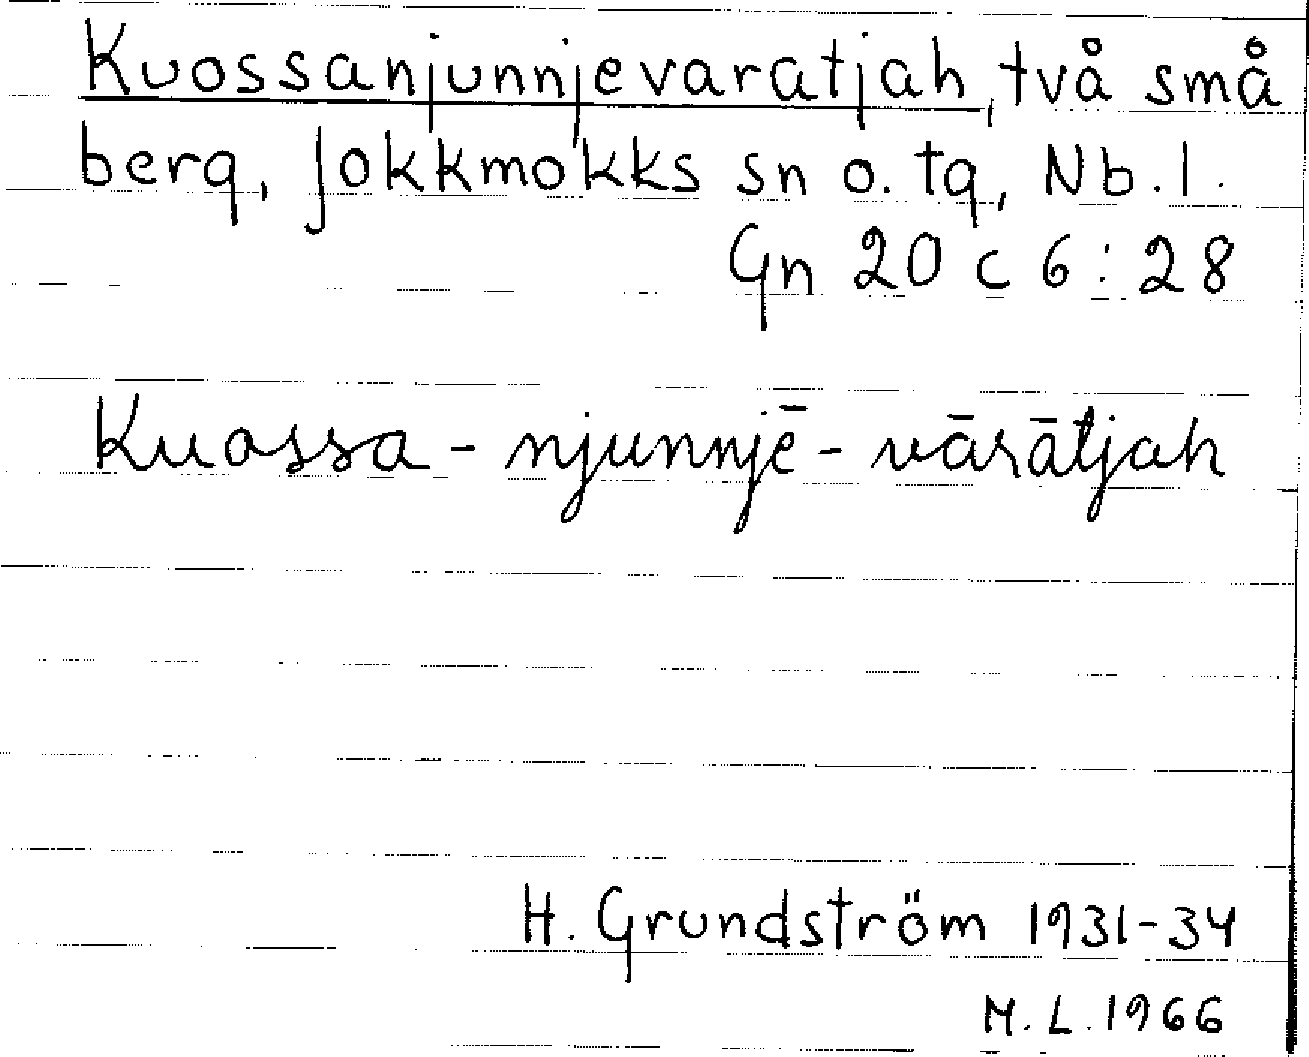 Kuossanjunnjevaratjah, två små
berg, Jokkmokks sn o. tg, Nb. l.
Gn 20 c 6:28
Kuossa-njunnjē-vārātjah
H. Grundström 1931-34
M. L. 1966